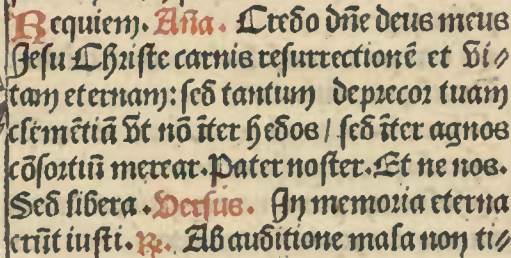 Requiem. Añа. Credo dñe deus meus
Jesu Christe carnis resurrectionē et vi⸗
tam eternam: sed tantum deprecor tuam
clemētiā vt nō īter hedos / sed īter agnos
cōsortiū merear. Pater noster. Et ne nos.
Sed libera. Versus. In memoria eterna
erūt iusti. ℟. Ab auditione mala non ti⸗